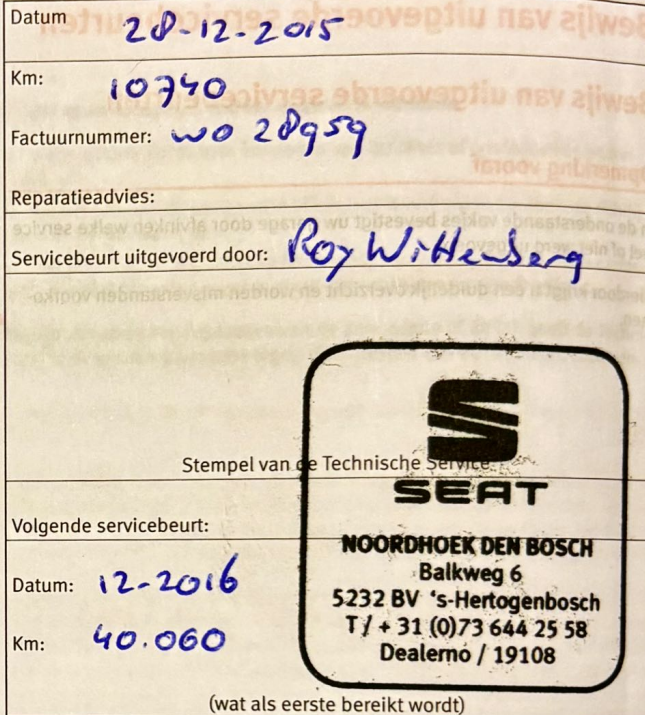 Datum 28-12-2015
Km: 10740
Factuurnummer: wo 28959
Reparatieadvies:
Servicebeurt uitgevoerd door: Roy Wittenberg
Stempel van de Technische Service
SEAT
NOORDHOEK DEN BOSCH
Balkweg 6
5232 BV 's-Hertogenbosch
T / + 31 (0)73 644 25 58
Dealerno / 19108
Volgende servicebeurt:
Datum: 12-2016
Km: 40.060
(wat als eerste bereikt wordt)